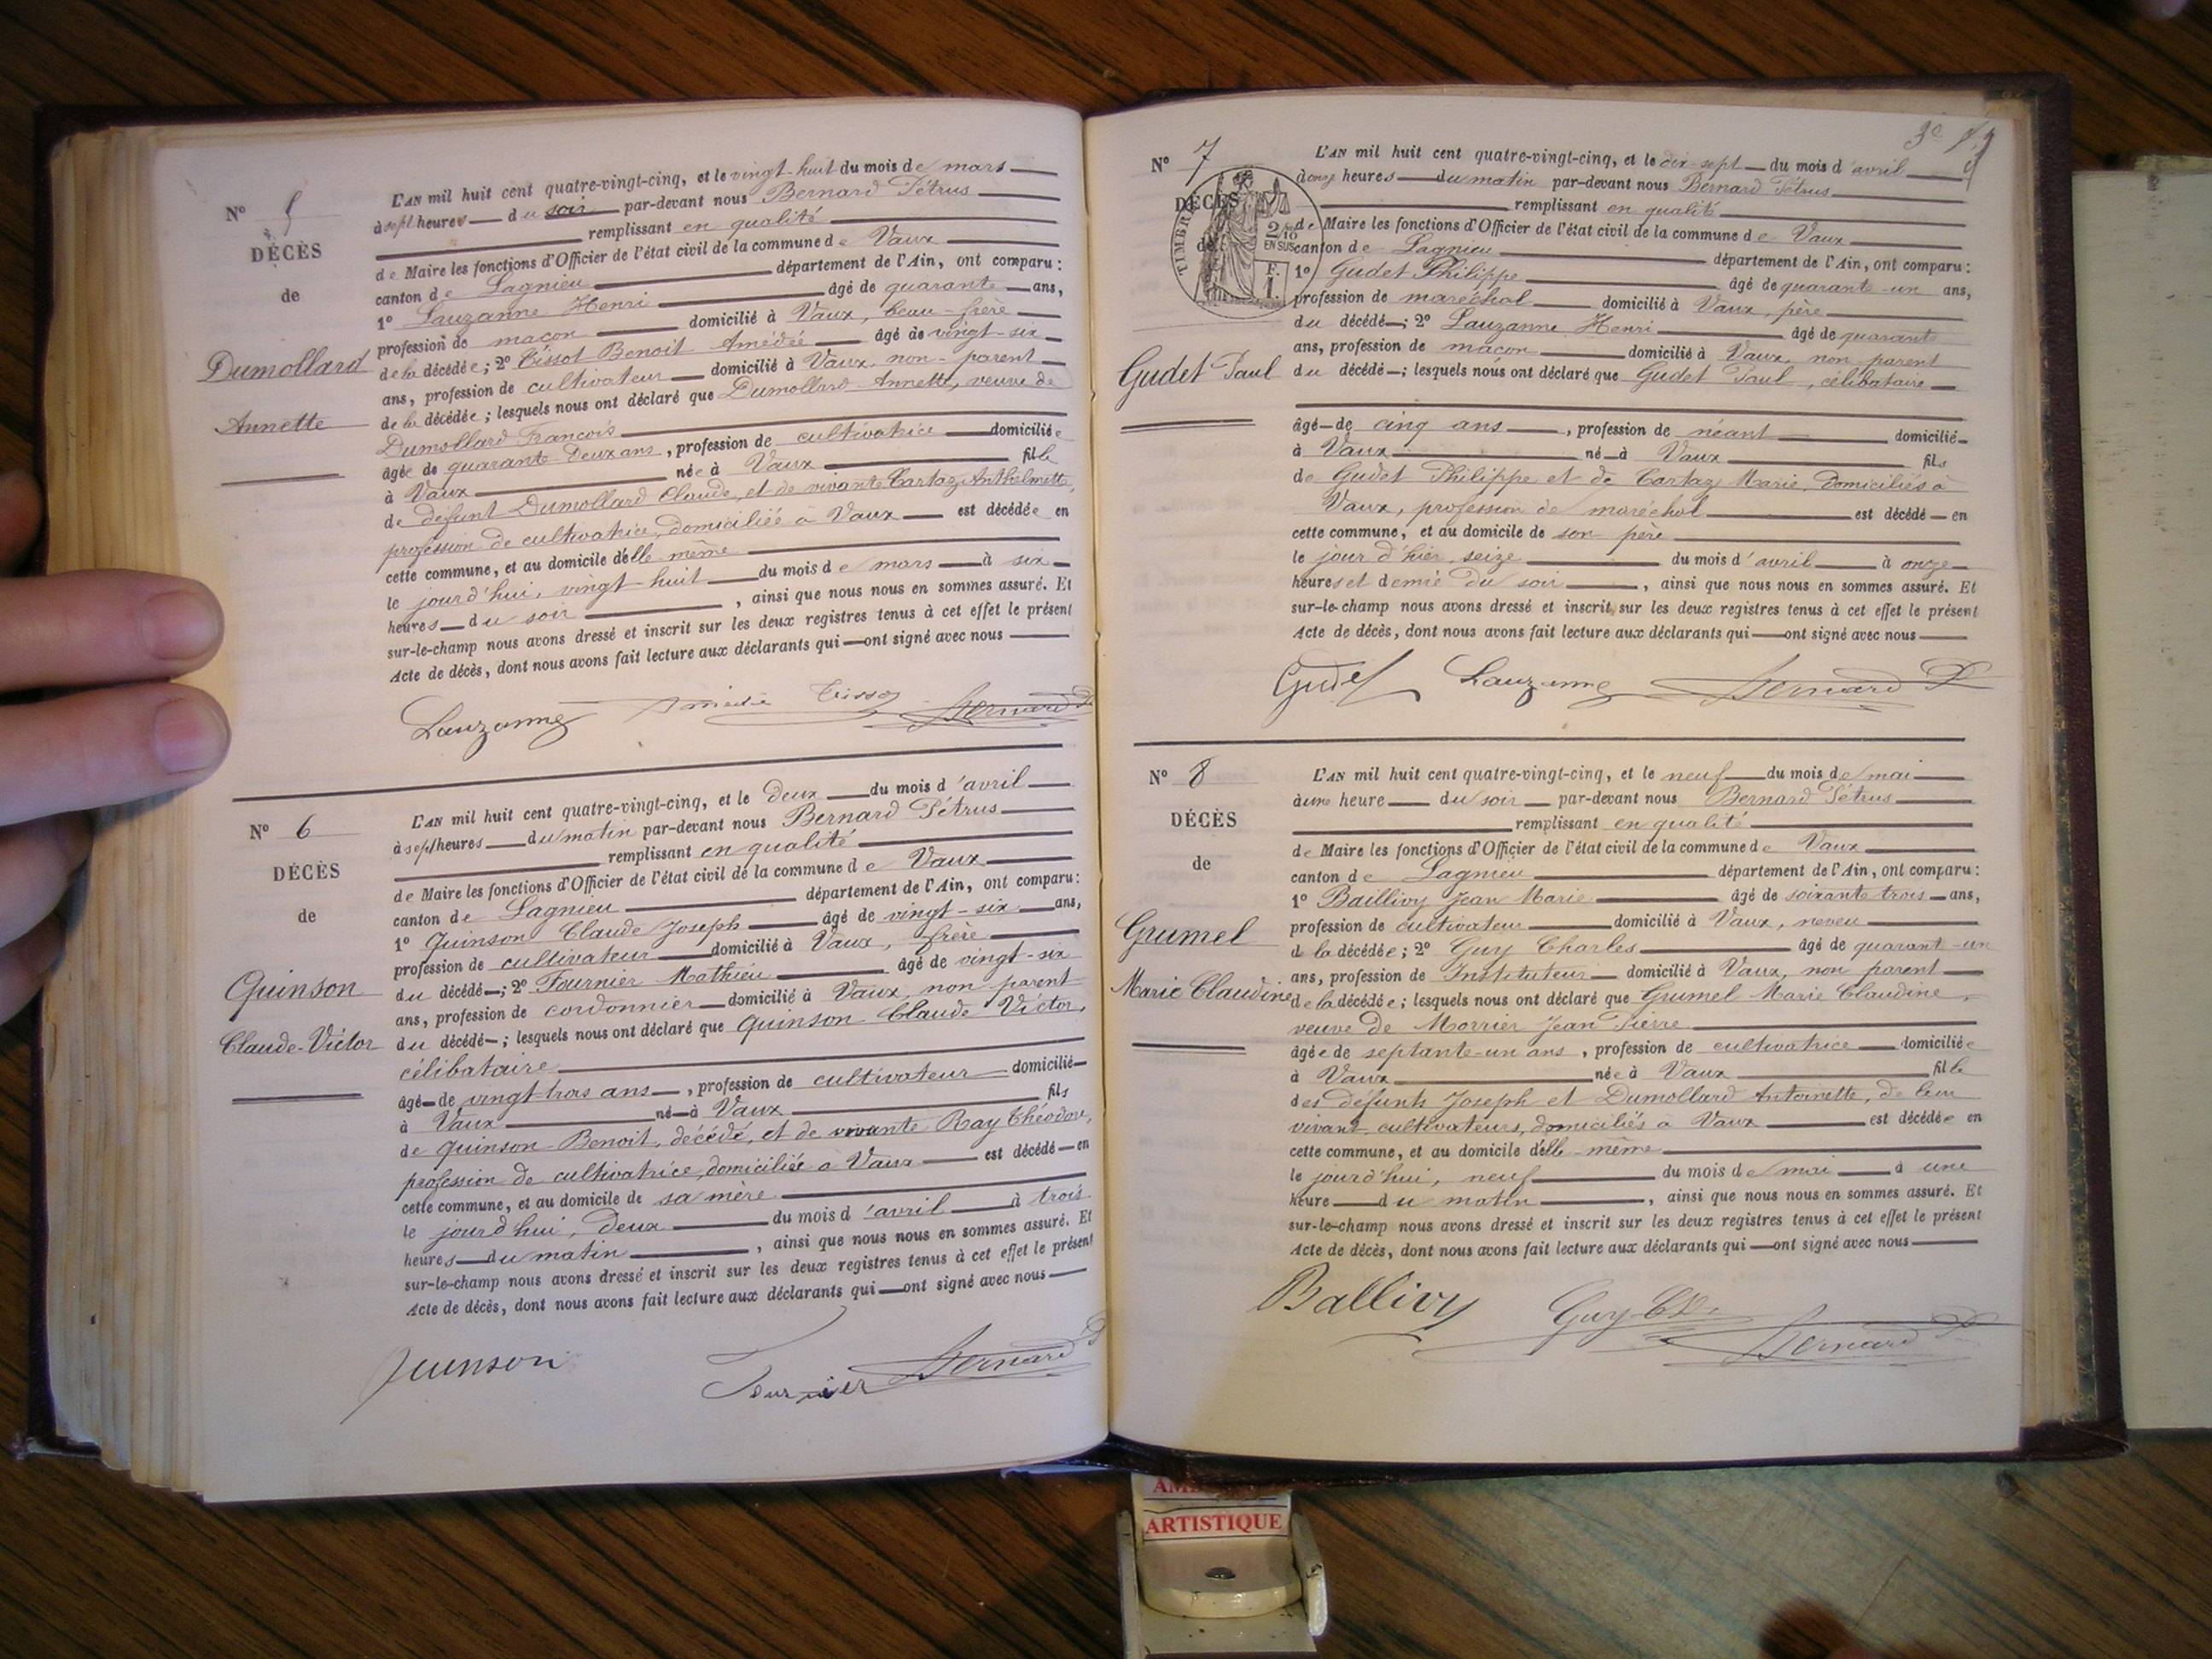 Nº 5
DÉCÈS
de
Dumollard
Annette
L'AN mil huit cent quatre-vingt-cinq, et le vingt-huit du mois de mars
à sept heures du soir par-devant nous Bernard Pétrus
remplissant en qualité
de Maire les fonctions d'Officier de l'état civil de la commune de Vaux
canton de Lagnieu département de l'Ain, ont comparu:
1º Lauzanne Henri âgé de quarante ans,
profession de maçon domicilié à Vaux, beau-frère
de la décédée; 2º Tissot Benoit Amédée âgé de vingt-six
ans, profession de cultivateur domicilié à Vaux, non-parent
de la décédée; lesquels nous ont déclaré que Dumollard Annette, veuve de
Dumollard François
âgée de quarante deux ans, profession de cultivatrice domiciliée
à Vaux née à Vaux fille
de défunt Dumollard Claude, et de vivante Cartaz Anthelmette,
profession de cultivatrice, domiciliée à Vaux est décédée en
cette commune, et au domicile d'elle même
le jourd'hui, vingt-huit du mois de mars à six
heures du soir, ainsi que nous nous en sommes assuré. Et
sur-le-champ nous avons dressé et inscrit sur les deux registres tenus à cet effet le présent
Acte de décès, dont nous avons fait lecture aux déclarants qui ont signé avec nous
Lauzanne Amédée Tissot Bernard P
Nº 6
DÉCÈS
de
Quinson
Claude-Victor
L'AN mil huit cent quatre-vingt-cinq, et le deux du mois d'avril
à sept heures du matin par-devant nous Bernard Pétrus
remplissant en qualité
de Maire les fonctions d'Officier de l'état civil de la commune de Vaux
canton de Lagnieu département de l'Ain, ont comparu:
1º Quinson Claude Joseph âgé de vingt-six ans,
profession de cultivateur domicilié à Vaux, frère
du décédé; 2º Fournier Mathieu âgé de vingt-six
ans, profession de cordonnier domicilié à Vaux, non parent
du décédé; lesquels nous ont déclaré que Quinson Claude Victor,
célibataire
âgé de vingt-trois ans, profession de cultivateur domicilié
à Vaux né à Vaux fils
de Quinson Benoit, décédé, et de vivante Ray Théodore,
profession de cultivatrice, domiciliée à Vaux est décédé en
cette commune, et au domicile de sa mère
le jourd'hui, deux du mois d'avril à trois
heures du matin, ainsi que nous nous en sommes assuré. Et
sur-le-champ nous avons dressé et inscrit sur les deux registres tenus à cet effet le présent
Acte de décès, dont nous avons fait lecture aux déclarants qui ont signé avec nous
Quinson Fournier Bernard P
Nº 7
DÉCÈS
de
TIMBRE
2/10
EN SUS
F.
1.
Gudet Paul
L'AN mil huit cent quatre-vingt-cinq, et le dix-sept du mois d'avril
à onze heures du matin par-devant nous Bernard Pétrus
remplissant en qualité
de Maire les fonctions d'Officier de l'état civil de la commune de Vaux
canton de Lagnieu département de l'Ain, ont comparu:
1º Gudet Philippe âgé de quarante-un ans,
profession de maréchal domicilié à Vaux, père
du décédé; 2º Lauzanne Henri âgé de quarante
ans, profession de maçon domicilié à Vaux, non parent
du décédé; lesquels nous ont déclaré que Gudet Paul, célibataire
âgé de cinq ans, profession de néant domicilié
à Vaux né à Vaux fils
de Gudet Philippe et de Cartaz Marie, domiciliés à
Vaux, profession de maréchal est décédé en
cette commune, et au domicile de son père
le jour d'hier, seize du mois d'avril à onze
heures et demie du soir, ainsi que nous nous en sommes assuré. Et
sur-le-champ nous avons dressé et inscrit sur les deux registres tenus à cet effet le présent
Acte de décès, dont nous avons fait lecture aux déclarants qui ont signé avec nous
Gudet Lauzanne Bernard P
Nº 8
DÉCÈS
de
Grumel
Marie Claudine
L'AN mil huit cent quatre-vingt-cinq, et le neuf du mois de mai
à une heure du soir par-devant nous Bernard Pétrus
remplissant en qualité
de Maire les fonctions d'Officier de l'état civil de la commune de Vaux
canton de Lagnieu département de l'Ain, ont comparu:
1º Baillivy Jean Marie âgé de soixante trois ans,
profession de cultivateur domicilié à Vaux, neveu
de la décédée; 2º Guy Charles âgé de quarant-un
ans, profession de Instituteur domicilié à Vaux, non parent
de la décédée; lesquels nous ont déclaré que Grumel Marie Claudine,
veuve de Morrier Jean Pierre
âgée de septante-un ans, profession de cultivatrice domiciliée
à Vaux née à Vaux fille
des défunts Joseph et Dumollard Antoinette, de leur
vivant cultivateurs, domiciliés à Vaux est décédée en
cette commune, et au domicile d'elle-même
le jourd'hui, neuf du mois de mai à une
heure du matin, ainsi que nous nous en sommes assuré. Et
sur-le-champ nous avons dressé et inscrit sur les deux registres tenus à cet effet le présent
Acte de décès, dont nous avons fait lecture aux déclarants qui ont signé avec nous
Ballivy Guy Ch. Bernard P
ARTISTIQUE